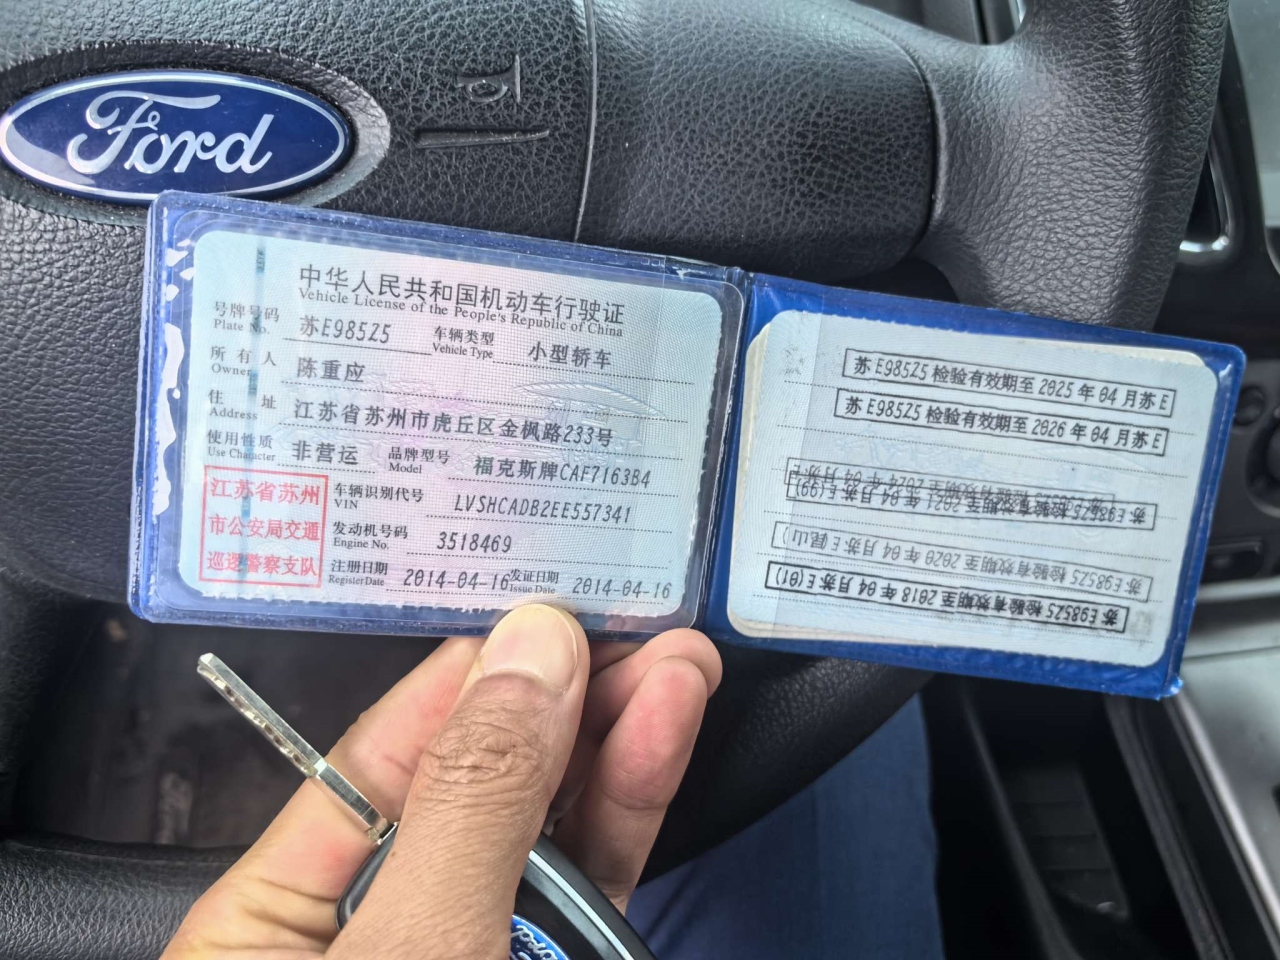 Ford
中华人民共和国机动车行驶证
Vehicle License of the People's Republic of China
号牌号码 苏E985Z5 车辆类型 小型轿车
Plate No. Vehicle Type
所有人 陈重应
Owner
住址 江苏省苏州市虎丘区金枫路233号
Address
使用性质 非营运 品牌型号 福克斯牌CAF7163B4
Use Character Model
江苏省苏州
市公安局交通
巡逻警察支队
车辆识别代号 LVSHCADB2EE557341
VIN
发动机号码 3518469
Engine No.
注册日期 2014-04-16 发证日期 2014-04-16
Register Date Issue Date
苏E985Z5检验有效期至2025年04月苏E
苏E985Z5检验有效期至2026年04月苏E
苏E985Z5检验有效期至2020年04月苏E
苏E985Z5检验有效期至2018年04月苏E(01)
Ford